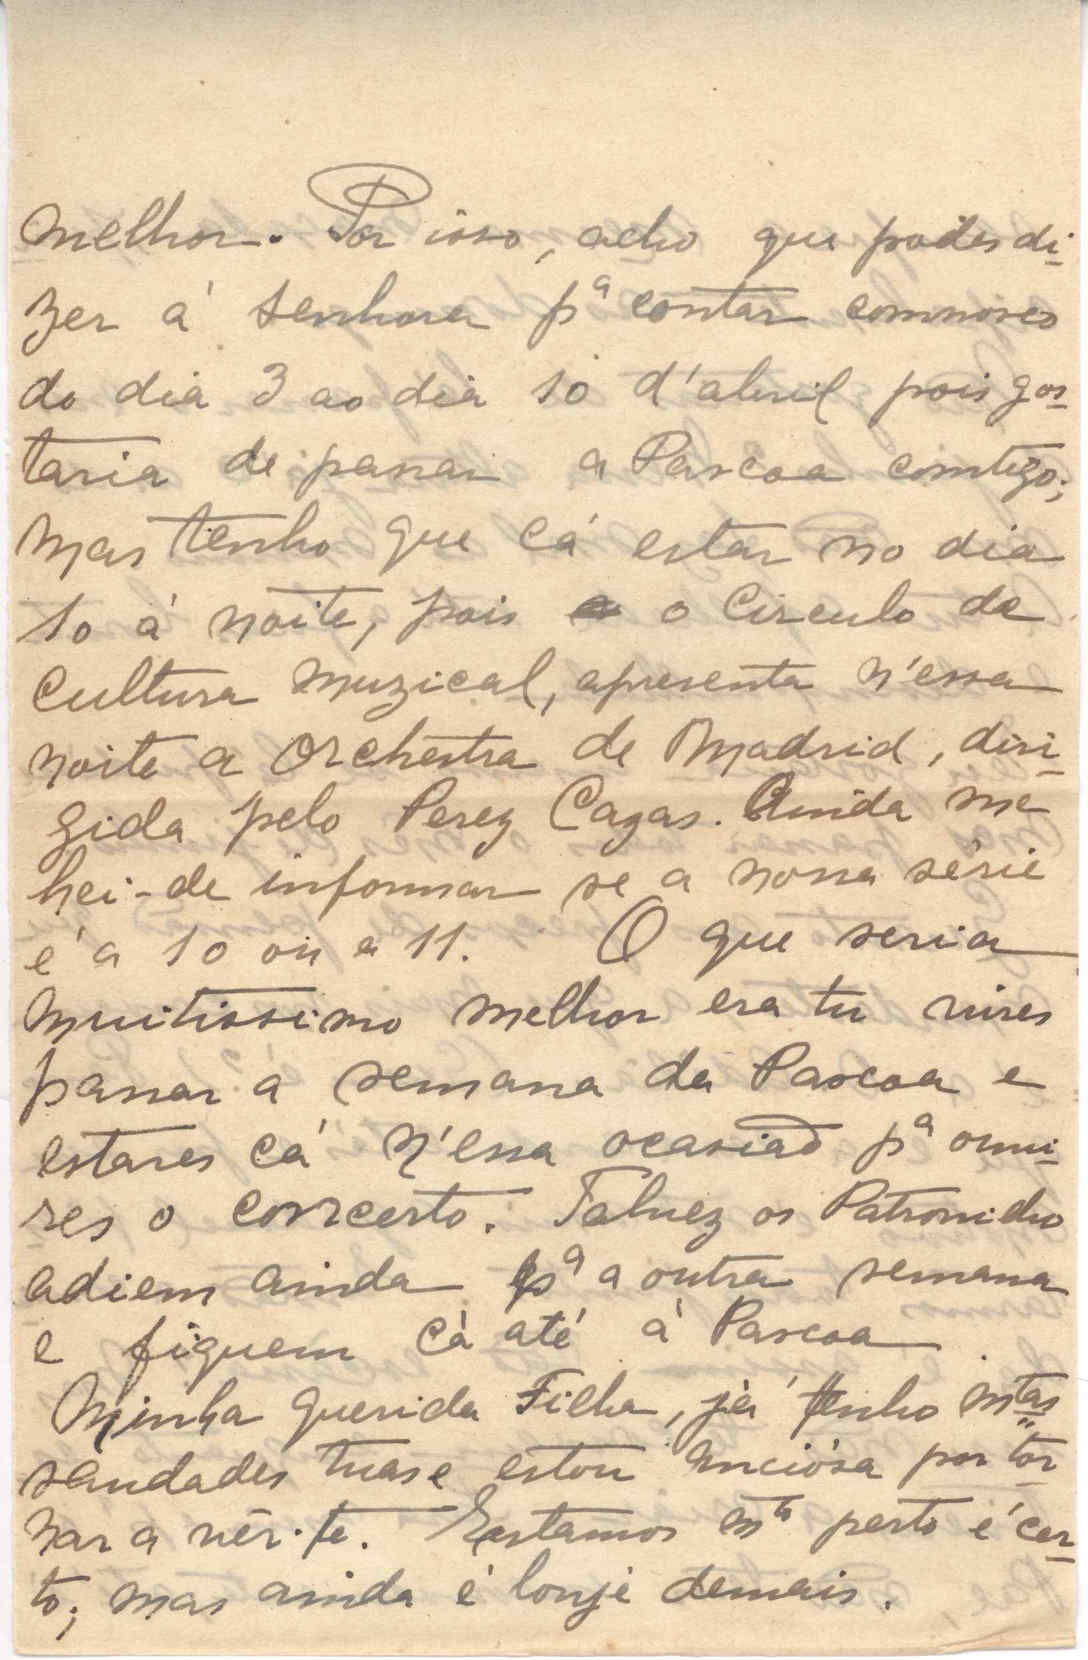 melhor. Por isso, acho que podes di-
zer á senhora pª contar comnosco
do dia 3 ao dia 10 d'abril pois gos-
taria de passar a Pascoa comtigo;
mas tenho que cá estar no dia
10 á noite, pois o Circulo de
Cultura Muzical, apresenta n'essa
noite a Orchestra de Madrid, diri-
gida pelo Perez Cazas. Ainda me
hei-de informar se a nossa série
é a 10 ou a 11. O que seria
muitissimo melhor era tu vires
passar a semana da Pascoa e
estares cá n'essa ocasião pª ouvi-
res o concerto. Talvez os Patronicho
adiem ainda pª a outra semana
e fiquem cá até á Pascoa
Minha querida Filha, já tenho mtas
saudades tuas e estou anciósa por tor-
nar a vêr-te. Estamos mto perto é cer-
to; mas ainda é lonje demais.